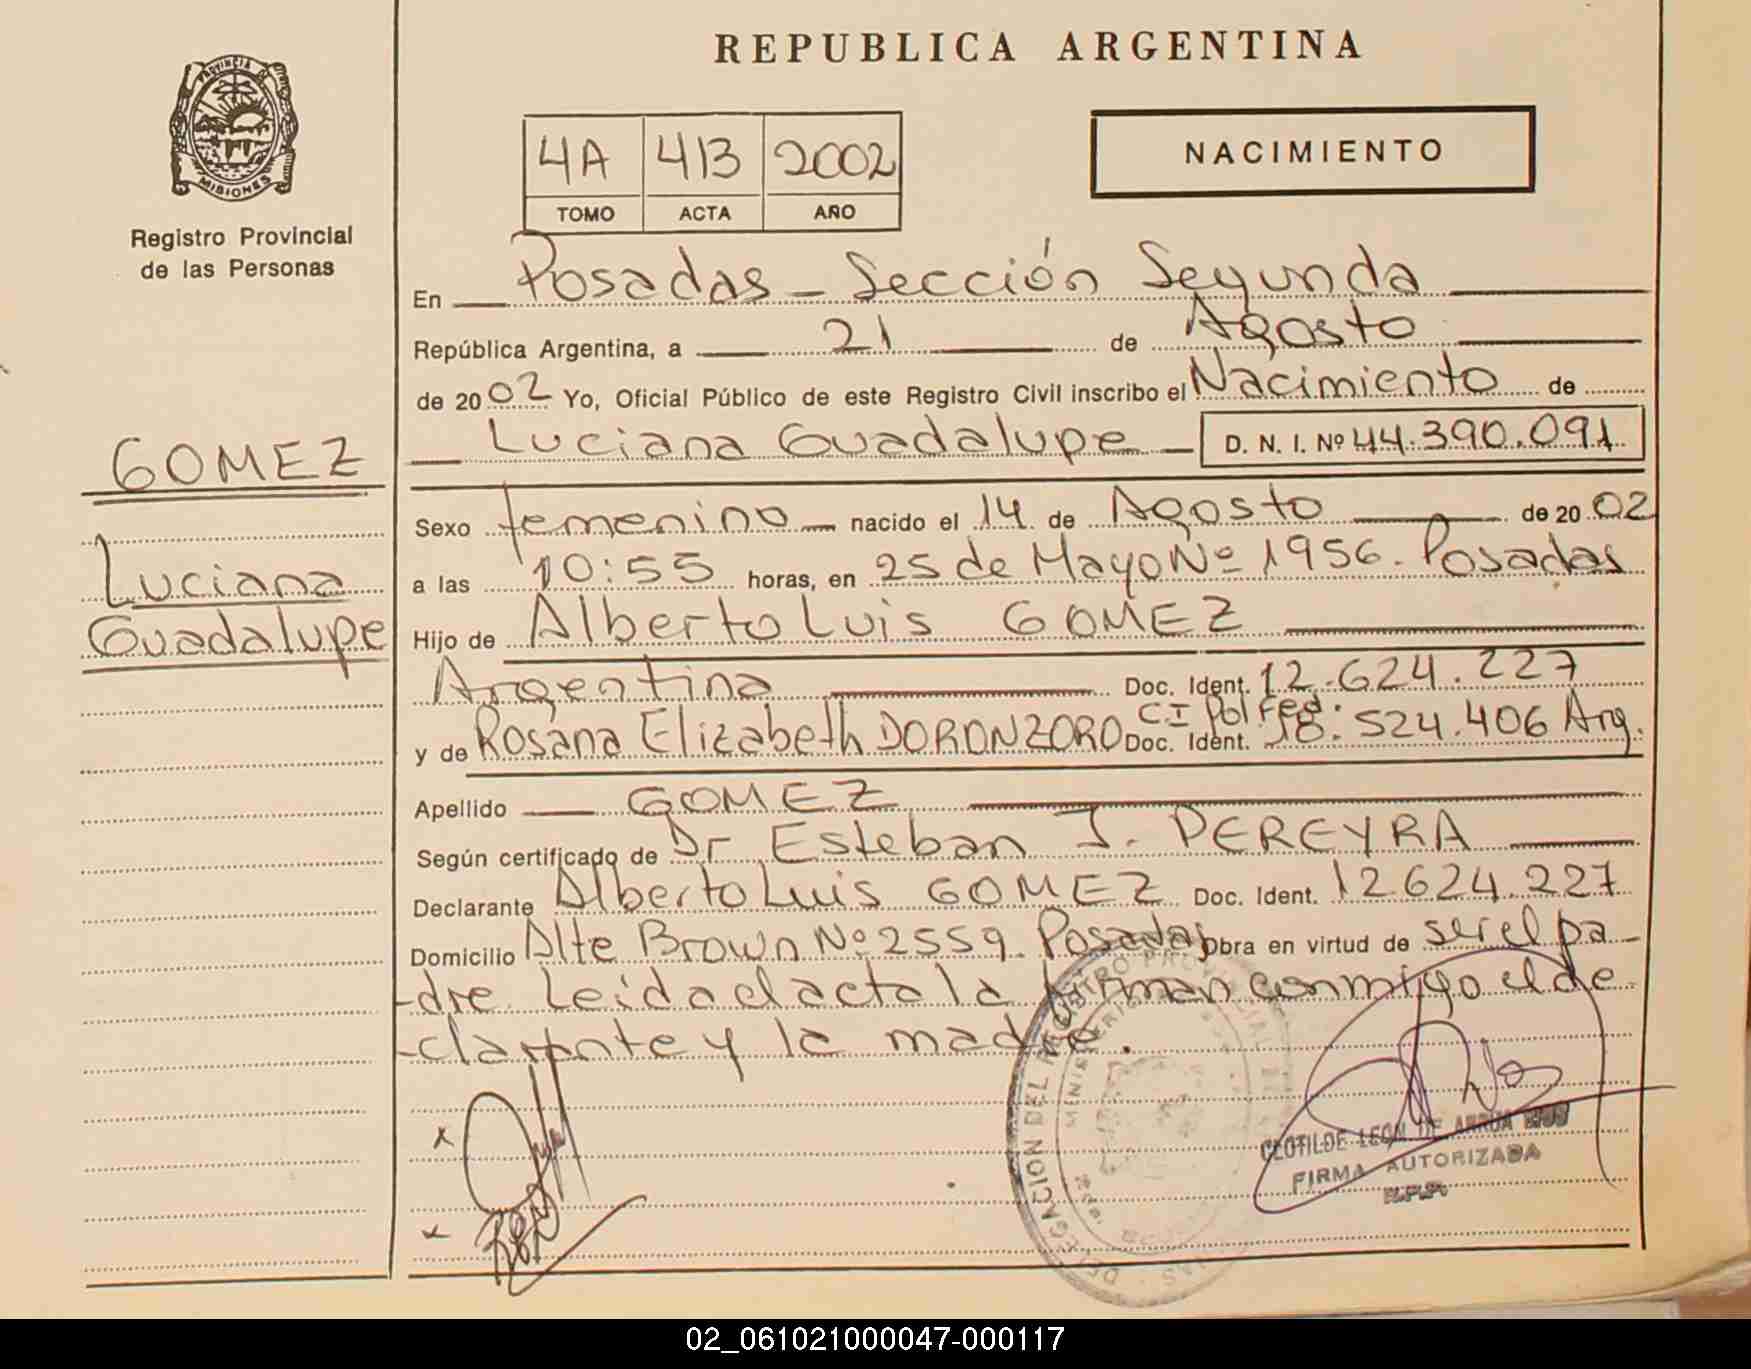 REPUBLICA ARGENTINA
PROVINCIA DE MISIONES
Registro Provincial
de las Personas
4A 413 2002
TOMO ACTA AÑO
NACIMIENTO
En Posadas - Sección Segunda
República Argentina, a 21 de Agosto
de 2002 Yo, Oficial Público de este Registro Civil inscribo el Nacimiento de
Luciana Guadalupe D. N. I. Nº 44.390.091
GOMEZ
Luciana
Guadalupe
Sexo femenino nacido el 14 de Agosto de 2002
a las 10:55 horas, en 25 de Mayo Nº 1956. Posadas
Hijo de Alberto Luis GOMEZ
Argentina Doc. Ident. 12.624.227
CI Pol Fed.
y de Rosana Elizabeth DORONZORO Doc. Ident. 18.524.406 Arg.
Apellido GOMEZ
Según certificado de Dr Esteban J. PEREYRA
Declarante Alberto Luis GOMEZ Doc. Ident. 12624.227
Domicilio Alte Brown Nº 2559. Posadas Obra en virtud de ser el pa-
-dre. Leida el acta la firman conmigo el de-
-clarante y la madre.
DELEGACION DEL REGISTRO PROVINCIAL
CLOTILDE LEON DE ARRUA
FIRMA AUTORIZADA
R.P.P.
02_061021000047-000117